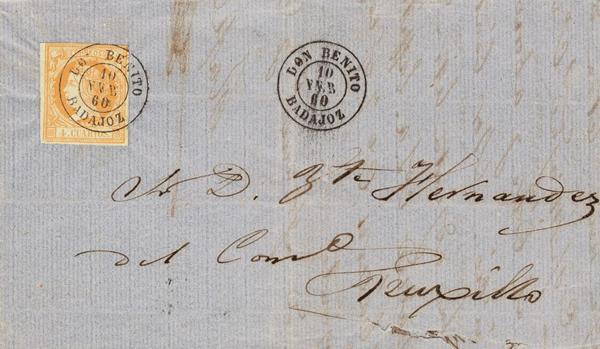 DON BENITO
10
FEB
60
BADAJOZ
4 CUARTOS
DON BENITO
10
FEB
60
BADAJOZ
Sr D. Hernandez
del Com.o
Truxillo